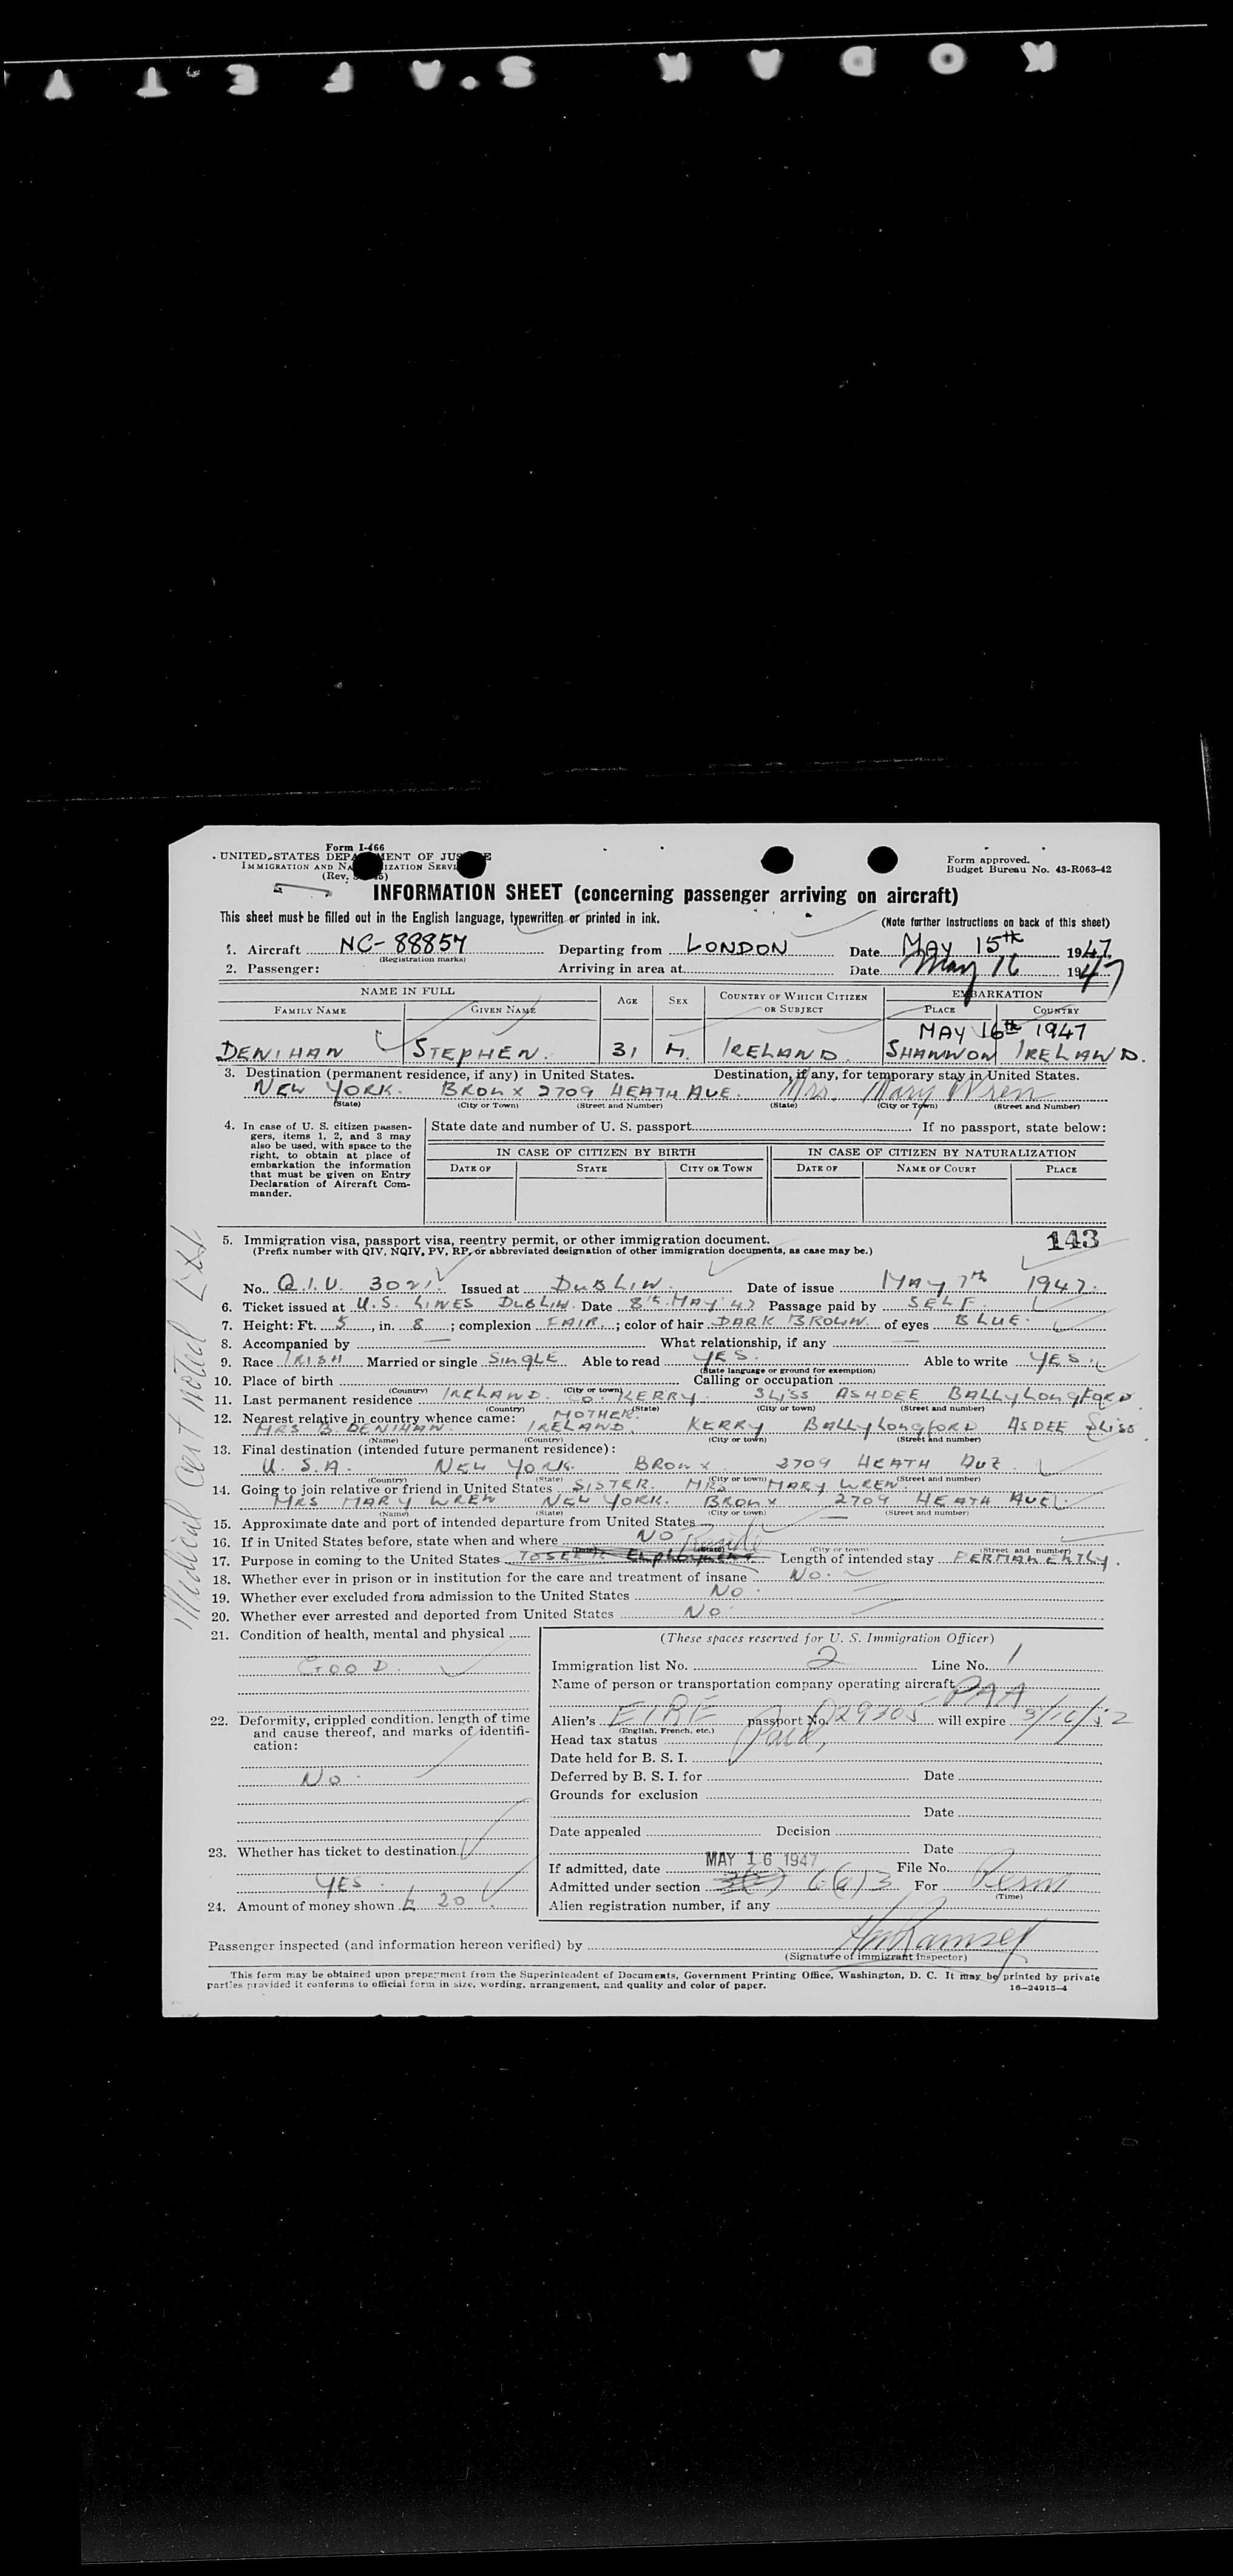 KODAK S.AFETY
Form I-466
UNITED STATES DEPA MENT OF JUS E
IMMIGRATION AND NA IZATION SERVI
(Rev. 5)
Form approved.
Budget Bureau No. 43-R063-42
INFORMATION SHEET (concerning passenger arriving on aircraft)
This sheet must be filled out in the English language, typewritten or printed in ink.
(Note further instructions on back of this sheet)
1. Aircraft NC-88857 Departing from LONDON Date MAY 15th 1947
(Registration marks)
2. Passenger: Arriving in area at Date May 16 1947
NAME IN FULL AGE SEX COUNTRY OF WHICH CITIZEN OR SUBJECT EMBARKATION
FAMILY NAME GIVEN NAME PLACE COUNTRY
MAY 16th 1947
DENIHAN STEPHEN. 31 M. IRELAND. SHANNON IRELAND.
3. Destination (permanent residence, if any) in United States. Destination, if any, for temporary stay in United States.
NEW YORK. BRONX 2709 HEATH AVE. Mrs. Mary Wren
(State) (City or Town) (Street and Number) (State) (City or Town) (Street and Number)
4. In case of U. S. citizen passen-
gers, items 1, 2, and 3 may
also be used, with space to the
right, to obtain at place of
embarkation the information
that must be given on Entry
Declaration of Aircraft Com-
mander.
State date and number of U. S. passport If no passport, state below:
IN CASE OF CITIZEN BY BIRTH IN CASE OF CITIZEN BY NATURALIZATION
DATE OF STATE CITY OR TOWN DATE OF NAME OF COURT PLACE
143
5. Immigration visa, passport visa, reentry permit, or other immigration document.
(Prefix number with QIV, NQIV, PV, RP, or abbreviated designation of other immigration documents, as case may be.)
No. Q.I.V. 3021 Issued at DUBLIN. Date of issue MAY 7th 1947.
6. Ticket issued at U.S. LINES DUBLIN. Date 8th MAY 47 Passage paid by SELF.
7. Height: Ft. 5, in. 8; complexion FAIR; color of hair DARK BROWN of eyes BLUE.
8. Accompanied by — What relationship, if any —
9. Race IRISH Married or single SINGLE Able to read YES. Able to write YES.
(State language or ground for exemption)
10. Place of birth Calling or occupation
(Country) (City or town)
11. Last permanent residence IRELAND. CO. KERRY. SLISS ASHDEE BALLYLONGFORD
(Country) (State) (City or town) (Street and number)
12. Nearest relative in country whence came: MOTHER.
MRS B. DENIHAN. IRELAND. KERRY BALLYLONGFORD ASDEE SLISS.
(Name) (Country) (City or town) (Street and number)
13. Final destination (intended future permanent residence):
U. S.A. NEW YORK. BRONX. 2709 HEATH AVE.
(Country) (State) (City or town) (Street and number)
14. Going to join relative or friend in United States SISTER. MRS MARY WREN.
MRS MARY WREN NEW YORK. BRONX 2709 HEATH AVE.
(Name) (State) (City or town) (Street and number)
15. Approximate date and port of intended departure from United States —
16. If in United States before, state when and where NO
(Date) (State) (City or town) (Street and number)
17. Purpose in coming to the United States TO SEEK EMPLOYMENT Reside Length of intended stay PERMANENTLY.
18. Whether ever in prison or in institution for the care and treatment of insane NO.
19. Whether ever excluded from admission to the United States NO.
20. Whether ever arrested and deported from United States NO.
21. Condition of health, mental and physical
GOOD.
22. Deformity, crippled condition, length of time
and cause thereof, and marks of identifi-
cation:
NO.
23. Whether has ticket to destination
YES.
24. Amount of money shown £ 20.
(These spaces reserved for U. S. Immigration Officer)
Immigration list No. 2 Line No. 1
Name of person or transportation company operating aircraft PAA
Alien's EIRE passport No. 29305 will expire 3/16/52
(English, French, etc.)
Head tax status Paid,
Date held for B. S. I.
Deferred by B. S. I. for Date
Grounds for exclusion
Date
Date appealed Decision
Date
If admitted, date MAY 16 1947 File No.
Admitted under section 6(a)3 For Perm
(Time)
Alien registration number, if any
Passenger inspected (and information hereon verified) by Ramsey
(Signature of immigrant inspector)
This form may be obtained upon prepayment from the Superintendent of Documents, Government Printing Office, Washington, D. C. It may be printed by private
parties provided it conforms to official form in size, wording, arrangement, and quality and color of paper.
16—24915-4
Medical Cert noted